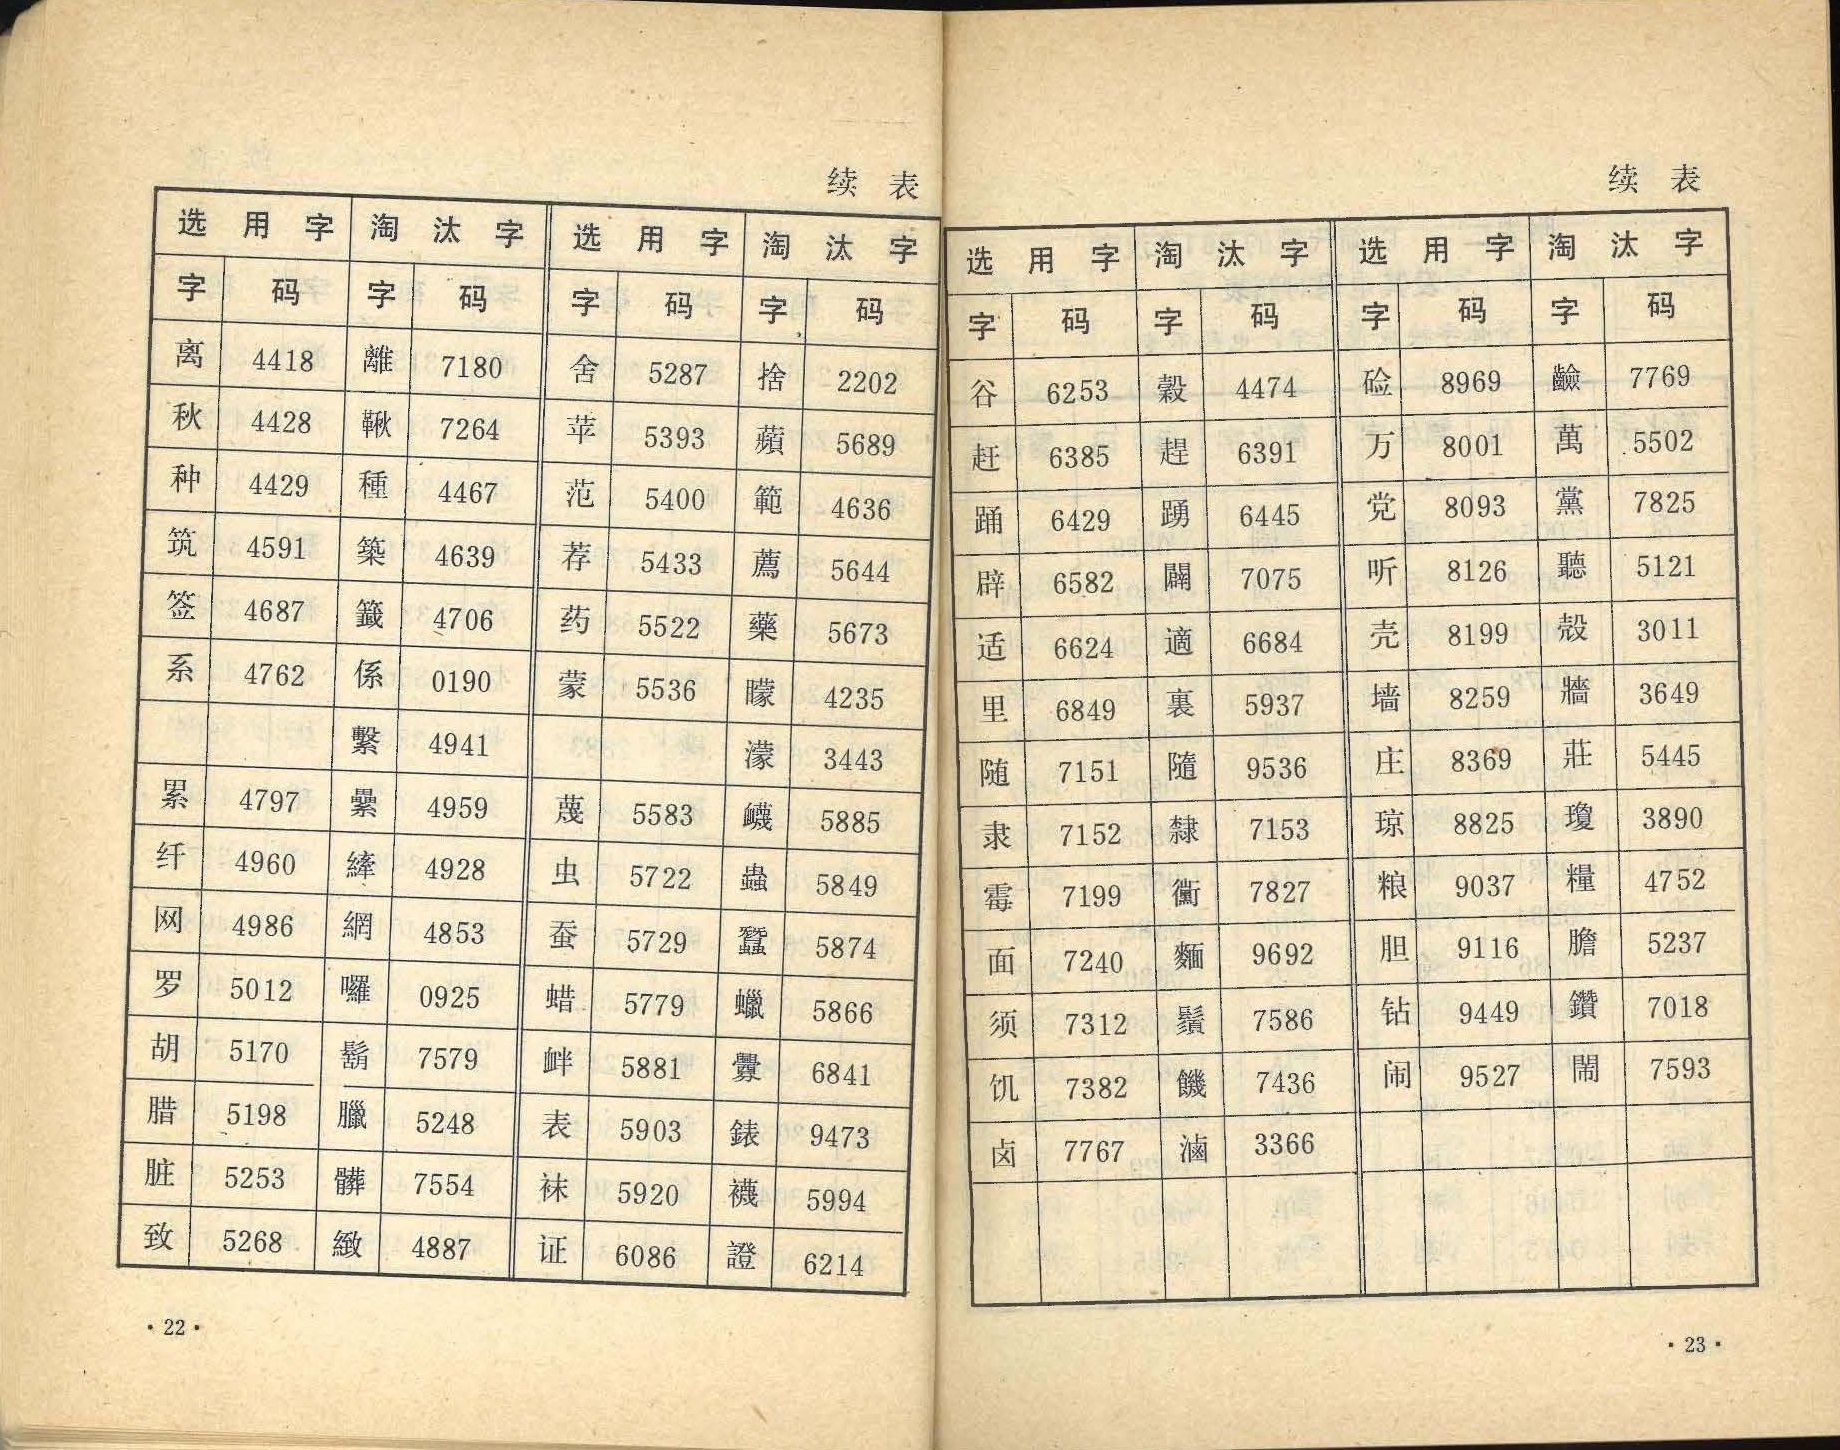 续 表
选 用 字 淘 汰 字 选 用 字 淘 汰 字
字 码 字 码 字 码 字 码
离 4418 離 7180 舍 5287 捨 2202
秋 4428 鞦 7264 苹 5393 蘋 5689
种 4429 種 4467 范 5400 範 4636
筑 4591 築 4639 荐 5433 薦 5644
签 4687 籤 4706 药 5522 藥 5673
系 4762 係 0190 蒙 5536 矇 4235
繫 4941 濛 3443
累 4797 纍 4959 蔑 5583 衊 5885
纤 4960 縴 4928 虫 5722 蟲 5849
网 4986 網 4853 蚕 5729 蠶 5874
罗 5012 囉 0925 蜡 5779 蠟 5866
胡 5170 鬍 7579 衅 5881 釁 6841
腊 5198 臘 5248 表 5903 錶 9473
脏 5253 髒 7554 袜 5920 襪 5994
致 5268 緻 4887 证 6086 證 6214
·22·
续 表
选 用 字 淘 汰 字 选 用 字 淘 汰 字
字 码 字 码 字 码 字 码
谷 6253 穀 4474 硷 8969 鹼 7769
赶 6385 趕 6391 万 8001 萬 5502
踊 6429 踴 6445 党 8093 黨 7825
辟 6582 闢 7075 听 8126 聽 5121
适 6624 適 6684 壳 8199 殼 3011
里 6849 裏 5937 墙 8259 牆 3649
随 7151 隨 9536 庄 8369 莊 5445
隶 7152 隸 7153 琼 8825 瓊 3890
霉 7199 7827 粮 9037 糧 4752
面 7240 麵 9692 胆 9116 膽 5237
须 7312 鬚 7586 钻 9449 鑽 7018
饥 7382 饑 7436 闹 9527 鬧 7593
卤 7767 滷 3366
·23·